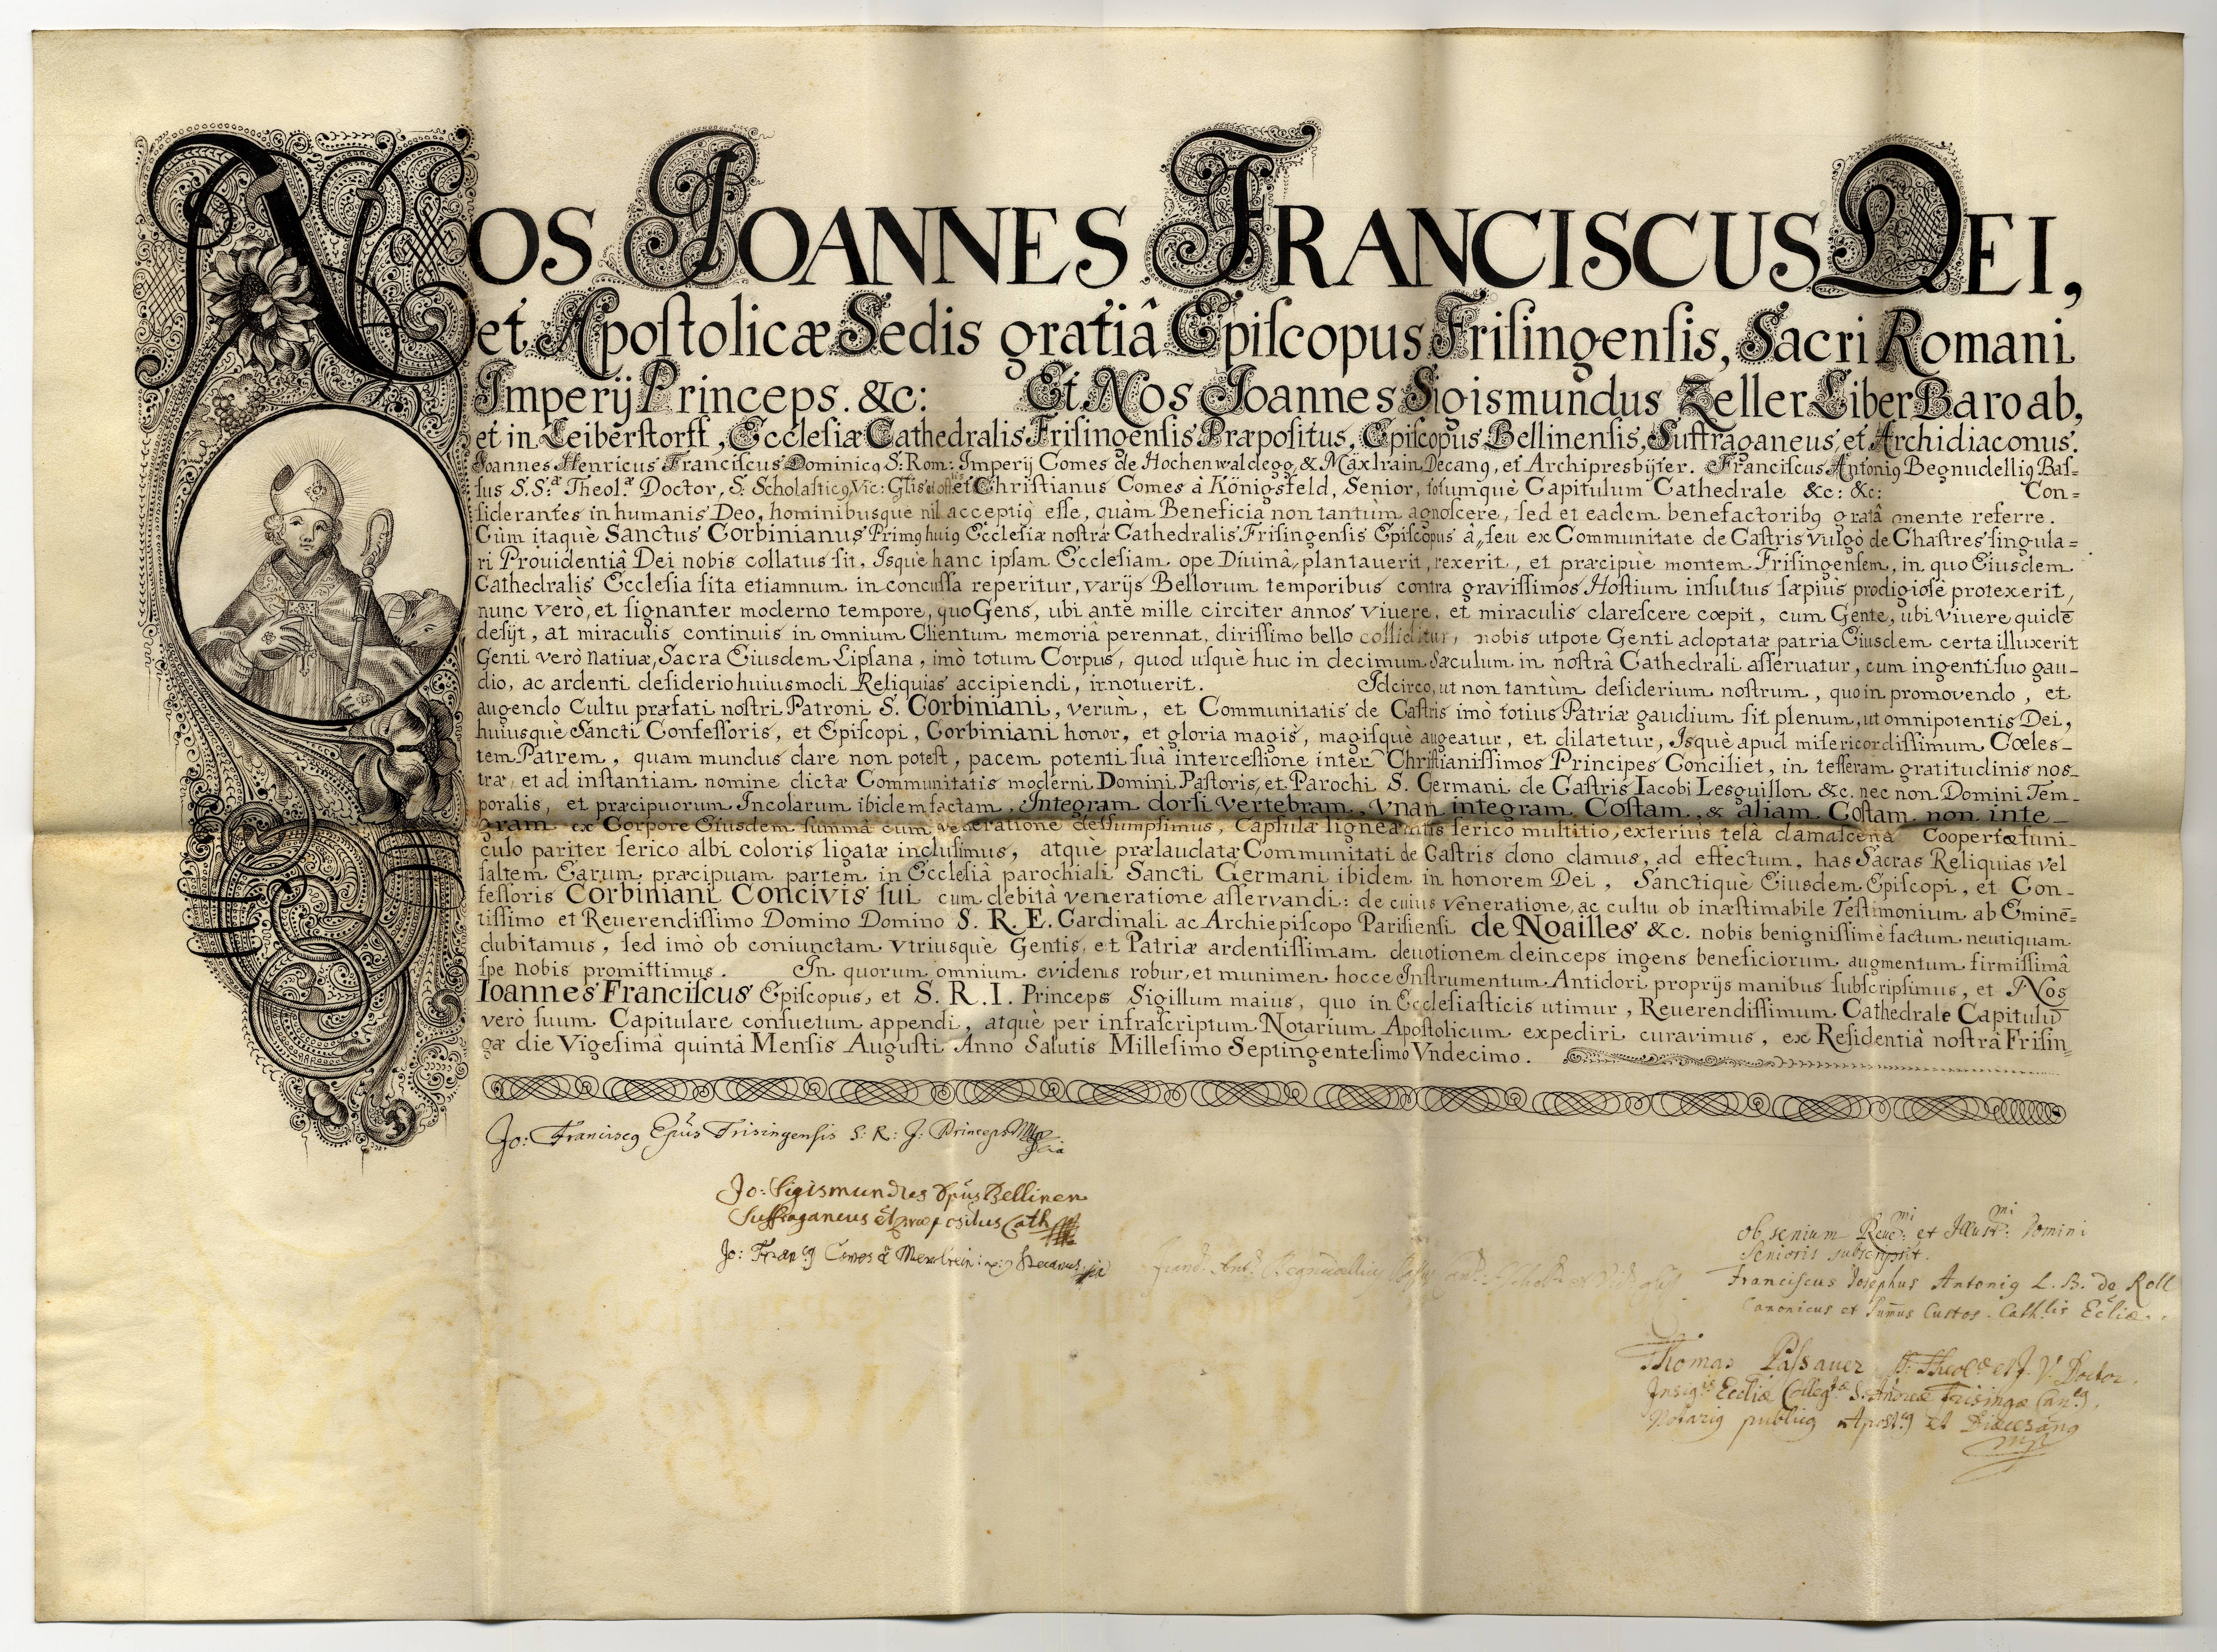 NOS JOANNES FRANCISCUS DEI,
et Apoſtolicæ Sedis gratiâ Epiſcopus Friſingenſis, Sacri Romani
Imperij Princeps. &c: Et Nos Joannes Sigismundus Zeller Liber Baro ab,
et in Leiberſtorff, Eccleſiæ Cathedralis Friſingenſis Præpoſitus, Epiſcopus Bellinenſis, Suffraganeus, et Archidiaconus.
Joannes Henricus Franciſcus Dominicꝰ S: Rom: Imperij Comes de Hochenwaldegg, & Mäxlrain Decanꝰ, et Archipresbijter. Franciſcus Antoniꝰ Begnudelliꝰ Baſ-
ſus S.S.æ Theol.æ Doctor, S: Scholaſticꝰ, Vic: et Chriſtianus Comes à Königsfeld, Senior, totumquè Capitulum Cathedrale &c: &c: Con=
ſiderantes in humanis Deo, hominibusque nil acceptiꝰ eſſe, quàm Beneficia non tantùm agnoſcere, ſed et eadem benefactoribꝰ gratâ mente referre.
Cùm itaquè Sanctus Corbinianus Primꝰ huiꝰ Eccleſiæ noſtræ Cathedralis Friſingenſis Epiſcopus â, ſeu ex Communitate de Caſtris vulgò de Chaſtres ſingula=
ri Prouidentiâ Dei nobis collatus ſit, Isquè hanc ipſam Eccleſiam ope Diuinâ, plantauerit, rexerit, et præcipuè montem Friſingenſem, in quo Eiusdem
Cathedralis Eccleſia ſita etiamnum inconcuſſa reperitur, varijs Bellorum temporibus contra graviſſimos Hoſtium inſultus ſæpiùs prodigioſè protexerit,
nunc verò, et ſignanter moderno tempore, quo Gens, ubi antè mille circiter annos viuere, et miraculis clareſcere cœpit, cum Gente, ubi viuere quidē
deſijt, at miraculis continuis in omnium Clientum memoriâ perennat, diriſſimo bello colliditur, nobis utpote Genti adoptatæ patria Eiusdem certa illuxerit
Genti verò nativæ, Sacra Eiusdem Lipſana, imò totum Corpus, quod uſquè huc in decimum Sæculum in noſtrâ Cathedrali aſſeruatur, cum ingenti ſuo gau-
dio, ac ardenti deſiderio huiusmodi Reliquias accipiendi, innotuerit. Idcirco, ut non tantùm deſiderium noſtrum, quo in promovendo, et
augendo Cultu præfati noſtri Patroni S. Corbiniani, verum, et Communitatis de Caſtris imò totius Patriæ gaudium ſit plenum, ut omnipotentis Dei,
huiusquè Sancti Confeſſoris, et Epiſcopi, Corbiniani honor, et gloria magis, magiſquè augeatur, et dilatetur, Isquè apud miſericordiſſimum Cœles-
tem Patrem, quam mundus dare non poteſt, pacem potenti ſuâ interceſſione inter Chriſtianiſſimos Principes Conciliet, in teſſeram gratitudinis noſ-
træ, et ad inſtantiam nomine dictæ Communitatis moderni Domini Paſtoris, et Parochi S. Germani de Caſtris Iacobi Lesguillon &c. nec non Domini Tem-
poralis, et præcipuorum Incolarum ibidem factam, Integram dorſi vertebram, Vnam integram Coſtam, & aliam Coſtam non inte-
gram ex Corpore Eiusdem ſummâ cum veneratione deſſumpſimus, Capſulæ ligneæ intis ſerico multitio, exterius telâ damaſcenâ Coopertæ funi-
culo pariter ſerico albi coloris ligatæ incluſimus, atque prælaudatæ Communitati de Caſtris dono damus, ad effectum, has Sacras Reliquias vel
ſaltem Earum præcipuam partem in Eccleſiâ parochiali Sancti Germani ibidem in honorem Dei, Sanctiquè Eiusdem Epiſcopi, et Con-
feſſoris Corbiniani Concivis ſui cum debitâ veneratione aſſervandi: de cuius veneratione, ac cultu ob inæſtimabile Teſtimonium ab Eminē=
tiſſimo et Reuerendiſſimo Domino Domino S. R. E. Cardinali ac Archiepiſcopo Pariſienſi de Noailles &c. nobis benigniſſimè factum neutiquam
dubitamus, ſed imò ob coniunctam vtriusquè Gentis, et Patriæ ardentiſſimam deuotionem deinceps ingens beneficiorum augmentum firmiſſimâ
ſpe nobis promittimus. In quorum omnium evidens robur, et munimen hocce Inſtrumentum Antidori proprijs manibus ſubſcripſimus, et Nos
Ioannes Franciſcus Epiſcopus, et S. R. I. Princeps Sigillum maius, quo in Eccleſiaſticis utimur, Reuerendiſſimum Cathedrale Capitulū
verò ſuum Capitulare conſuetum appendi, atquè per infraſcriptum Notarium Apoſtolicum expediri curavimus, ex Reſidentiâ noſtrâ Friſin-
gæ die Vigeſimâ quintâ Menſis Auguſti Anno Salutis Milleſimo Septingenteſimo Vndecimo.
Jo: Franciscꝰ Epūs Frisingenſis S: R: J: Princeps Mp̄ia
Jo: Sigismundus Epūs Bellinen
Suffraganeus et præpositus Cath
Jo: Fran cꝰ Comes à Mexlrein Decanus
Franc: Ant: Begnudelliꝰ Baſsꝰ
ob senium Reūmi et Illustr:mi Domini
Senioris subscripsit.
Franciſcus Josephus Antoniꝰ L. B. de Roll
Canonicus et Sum̄us Custos Cath:lis Eccliæ.
Thomas Paſsauer SS: Theol:æ et J. V. Doctor.
Insig:is Eccliæ Colleg:tæ S. Andreæ Frisingæ Can:cꝰ,
Notariꝰ publicꝰ Apost:cꝰ et Diœcesanꝰ
mp̄